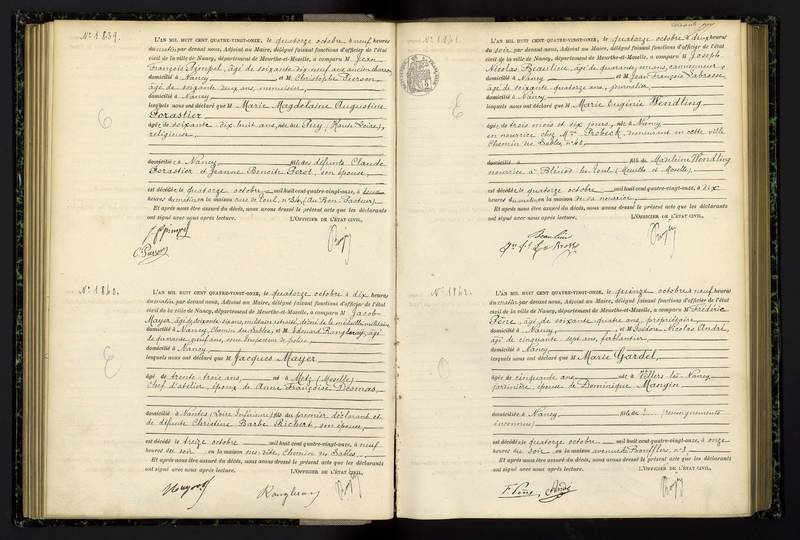 N° 1839.
L'AN MIL HUIT CENT QUATRE-VINGT-ONZE, le quatorze octobre à neuf heures
du matin, par devant nous, Adjoint au Maire, délégué faisant fonctions d'officier de l'état
civil de la ville de Nancy, département de Meurthe-et-Moselle, a comparu M Jean
François Pimpel, âgé de soixante dix neuf ans, ancien
domicilié à Nancy et M Christophe Pierson,
âgé de soixante deux ans, menuisier,
domicilié à Nancy
lesquels nous ont déclaré que M Marie Magdelaine Augustine
Forastier
âgée de soixante dix huit ans, née au Puy (Haute Loire),
religieuse
domiciliée à Nancy fille des défunts Claude
Forastier et Jeanne Benoite Perot, son épouse,
est décédée le quatorze octobre mil huit cent quatre-vingt-onze, à
heures du matin en la maison rue de Toul, n° (Au Bon Pasteur)
Et après nous être assuré du décès, nous avons dressé le présent acte que les déclarants
ont signé avec nous après lecture. L'OFFICIER DE L'ÉTAT CIVIL,
N° 1840.
L'AN MIL HUIT CENT QUATRE-VINGT-ONZE, le quatorze octobre à dix heures
du matin, par devant nous, Adjoint au Maire, délégué faisant fonctions d'officier de l'état
civil de la ville de Nancy, département de Meurthe-et-Moselle, a comparu M Jacob
Mayer, âgé de soixante ans, militaire retraité, décoré de la médaille militaire,
domicilié à Nancy, Chemin des Sables, et M Edouard âgé
de quarante neuf ans, sous inspecteur de police,
domicilié à Nancy
lesquels nous ont déclaré que M Jacques Mayer
âgé de trente trois ans, né à Metz (Moselle)
Chef d'atelier, époux de Anne Françoise Desmas,
domicilié à Nantes (Loire Inférieure) fils du premier déclarant et
de défunte Christine Barbe Richert, son épouse,
est décédé le treize octobre mil huit cent quatre-vingt-onze, à neuf
heures du soir en la maison sus dite, Chemin des Sables
Et après nous être assuré du décès, nous avons dressé le présent acte que les déclarants
ont signé avec nous après lecture. L'OFFICIER DE L'ÉTAT CIVIL,
N° 1841.
L'AN MIL HUIT CENT QUATRE-VINGT-ONZE, le quatorze octobre à deux heures
du soir, par devant nous, Adjoint au Maire, délégué faisant fonctions d'officier de l'état
civil de la ville de Nancy, département de Meurthe-et-Moselle, a comparu M Joseph
Nicolas Beaulieu, âgé de quarante ans, camionneur,
domicilié à Nancy et M Jean François Labrosse
âgé de soixante quatorze ans, journalier,
domicilié à Nancy
lesquels nous ont déclaré que M Marie Eugénie Wendling
âgée de trois mois et six jours, née à Nancy
en nourrice chez Mme Probeck, demeurant en cette ville
Chemin des Sables n° 40,
domiciliée à fille de Madeleine Wendling
nourrice à Blénod lès Toul (Meurthe et Moselle),
est décédée le quatorze octobre mil huit cent quatre-vingt-onze, à dix
heures du matin, en la maison de sa nourrice,
Et après nous être assuré du décès, nous avons dressé le présent acte que les déclarants
ont signé avec nous après lecture. L'OFFICIER DE L'ÉTAT CIVIL,
Beaulieu
N° 1842.
L'AN MIL HUIT CENT QUATRE-VINGT-ONZE, le quinze octobre à neuf heures
du matin, par devant nous, Adjoint au Maire, délégué faisant fonctions d'officier de l'état
civil de la ville de Nancy, département de Meurthe-et-Moselle, a comparu M Frédéric
âgé de soixante quatre ans, propriétaire,
domicilié à Nancy et M Isidore Nicolas André,
âgé de cinquante sept ans, ferblantier,
domicilié à Nancy
lesquels nous ont déclaré que M Marie Gardel,
âgée de cinquante ans née à Villers lès Nancy
jardinière, épouse de Dominique Mangin
domiciliée à Nancy, fille de (renseignements
inconnus)
est décédée le quatorze octobre mil huit cent quatre-vingt-onze, à onze
heures du soir en la maison avenue de Boufflers, n° 3,
Et après nous être assuré du décès, nous avons dressé le présent acte que les déclarants
ont signé avec nous après lecture. L'OFFICIER DE L'ÉTAT CIVIL,
André